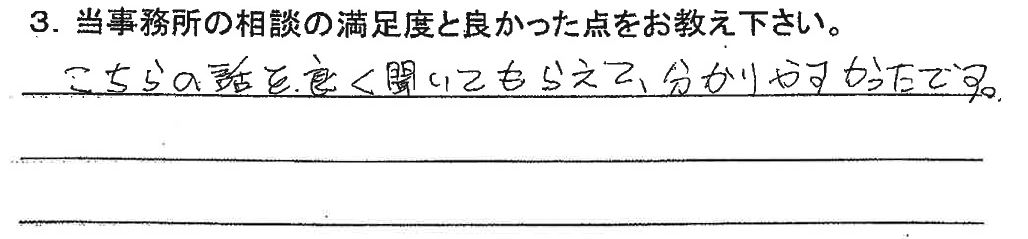 3. 当事務所の相談の満足度と良かった点をお教え下さい。
こちらの話を良く聞いてもらえて、分かりやすかったです。